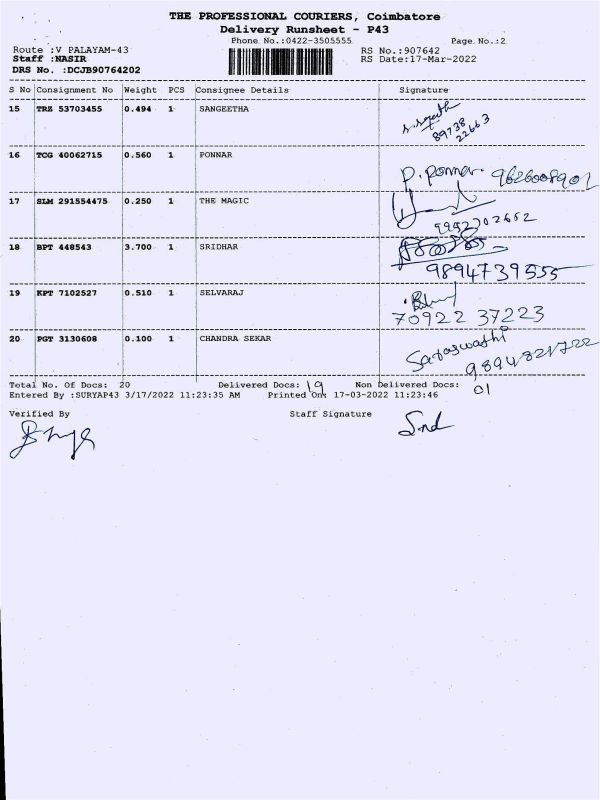 THE PROFESSIONAL COURIERS, Coimbatore
Delivery Runsheet - P43
Phone No.:0422-3505555 Page. No.:2
Route :V PALAYAM-43 RS No.:907642
Staff :NASIR RS Date:17-Mar-2022
DRS No. :DCJB90764202
S No Consignment No Weight PCS Consignee Details Signature
15 TRZ 53703455 0.494 1 SANGEETHA
89738
22663
16 TCG 40062715 0.560 1 PONNAR
P. Ponnar. 9626008901
17 SLM 291554475 0.250 1 THE MAGIC
9952702652
18 BPT 448543 3.700 1 SRIDHAR
9894739555
19 KPT 7102527 0.510 1 SELVARAJ
70922 37223
20 PGT 3130608 0.100 1 CHANDRA SEKAR
Saraswathi
9894821722
Total No. Of Docs: 20 Delivered Docs: 19 Non Delivered Docs: 01
Entered By :SURYAP43 3/17/2022 11:23:35 AM Printed On: 17-03-2022 11:23:46
Verified By Staff Signature